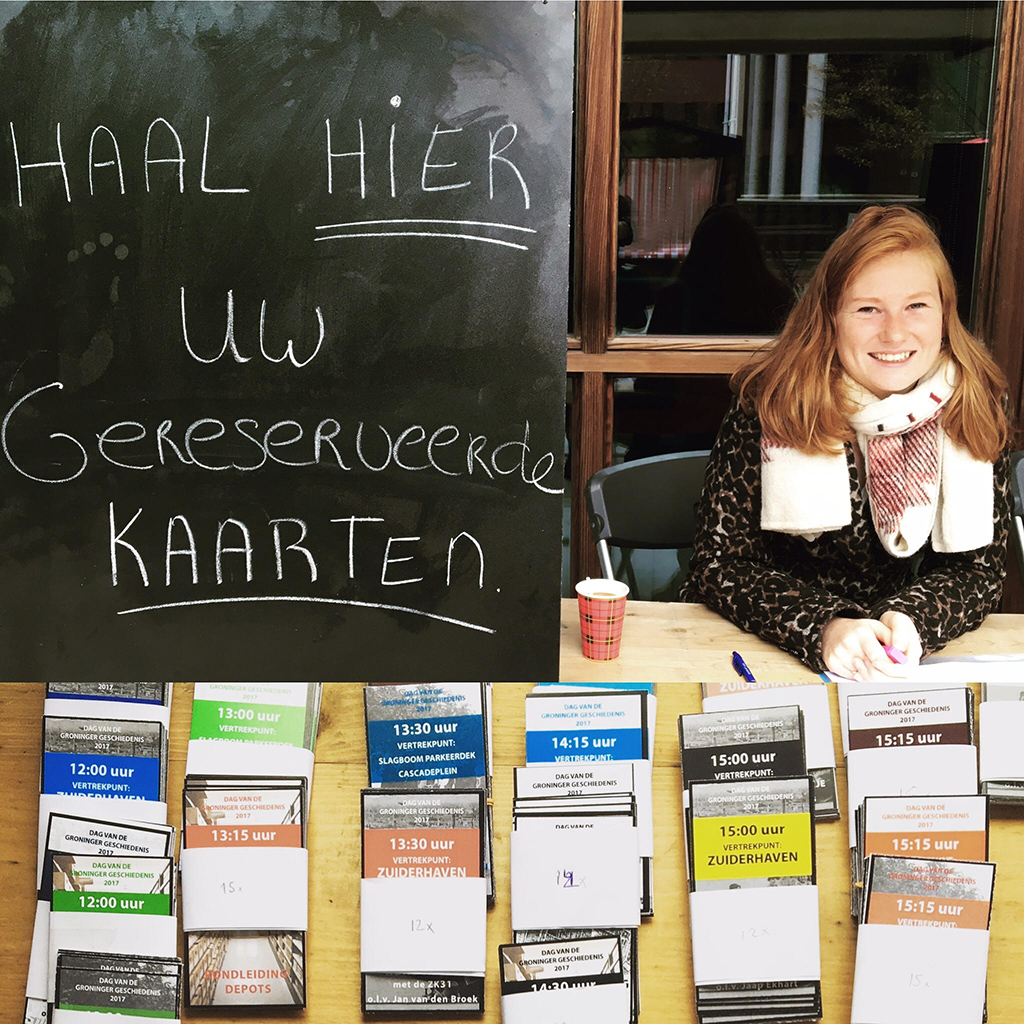 HAAL HiER
UW
GERESERVEERDE
KAARTEN.
DAG VAN DE
GRONINGER GESCHIEDENIS
2017
12:00 uur
VERTREKPUNT:
ZUIDERHAVEN
DAG VAN DE
GRONINGER GESCHIEDENIS
2017
DAG VAN DE
GRONINGER GESCHIEDENIS
2017
12:00 uur
DAG VAN DE
DAG VAN DE
GRONINGER GESCHIEDENIS
2017
GRONINGER GESCHIEDENIS
2017
13:00 uur
VERTREKPUNT:
SLAGBOOM PARKEERDEK
DAG VAN DE
GRONINGER GESCHIEDENIS
2017
13:15 uur
VERTREKPUNT:
15x
RONDLEIDING
DEPOTS
DAG VAN DE
GRONINGER GESCHIEDENIS
2017
13:30 uur
VERTREKPUNT:
SLAGBOOM PARKEERDEK
CASCADEPLEIN
DAG VAN DE
GRONINGER GESCHIEDENIS
2017
13:30 uur
VERTREKPUNT:
ZUIDERHAVEN
12x
met de ZK31
o.l.v. Jan van den Broek
DAG VAN DE
GRONINGER GESCHIEDENIS
2017
14:15 uur
VERTREKPUNT:
DAG VAN DE
GRONINGER GESCHIEDENIS
2017
DAG VAN DE
DAG VAN DE
GRONINGER GESCHIEDENIS
2017
14:30 uur
ZUIDERHAVEN
DAG VAN DE
GRONINGER GESCHIEDENIS
2017
15:00 uur
VERTREKPUNT:
DAG VAN DE
GRONINGER GESCHIEDENIS
2017
15:00 uur
VERTREKPUNT:
ZUIDERHAVEN
12x
o.l.v. Jaap Ekhart
DAG VAN DE
GRONINGER GESCHIEDENIS
2017
15:15 uur
VERTREKPUNT:
DAG VAN DE
GRONINGER GESCHIEDENIS
2017
15:15 uur
VERTREKPUNT:
DAG VAN DE
GRONINGER GESCHIEDENIS
2017
15:15 uur
VERTREKPUNT:
15x